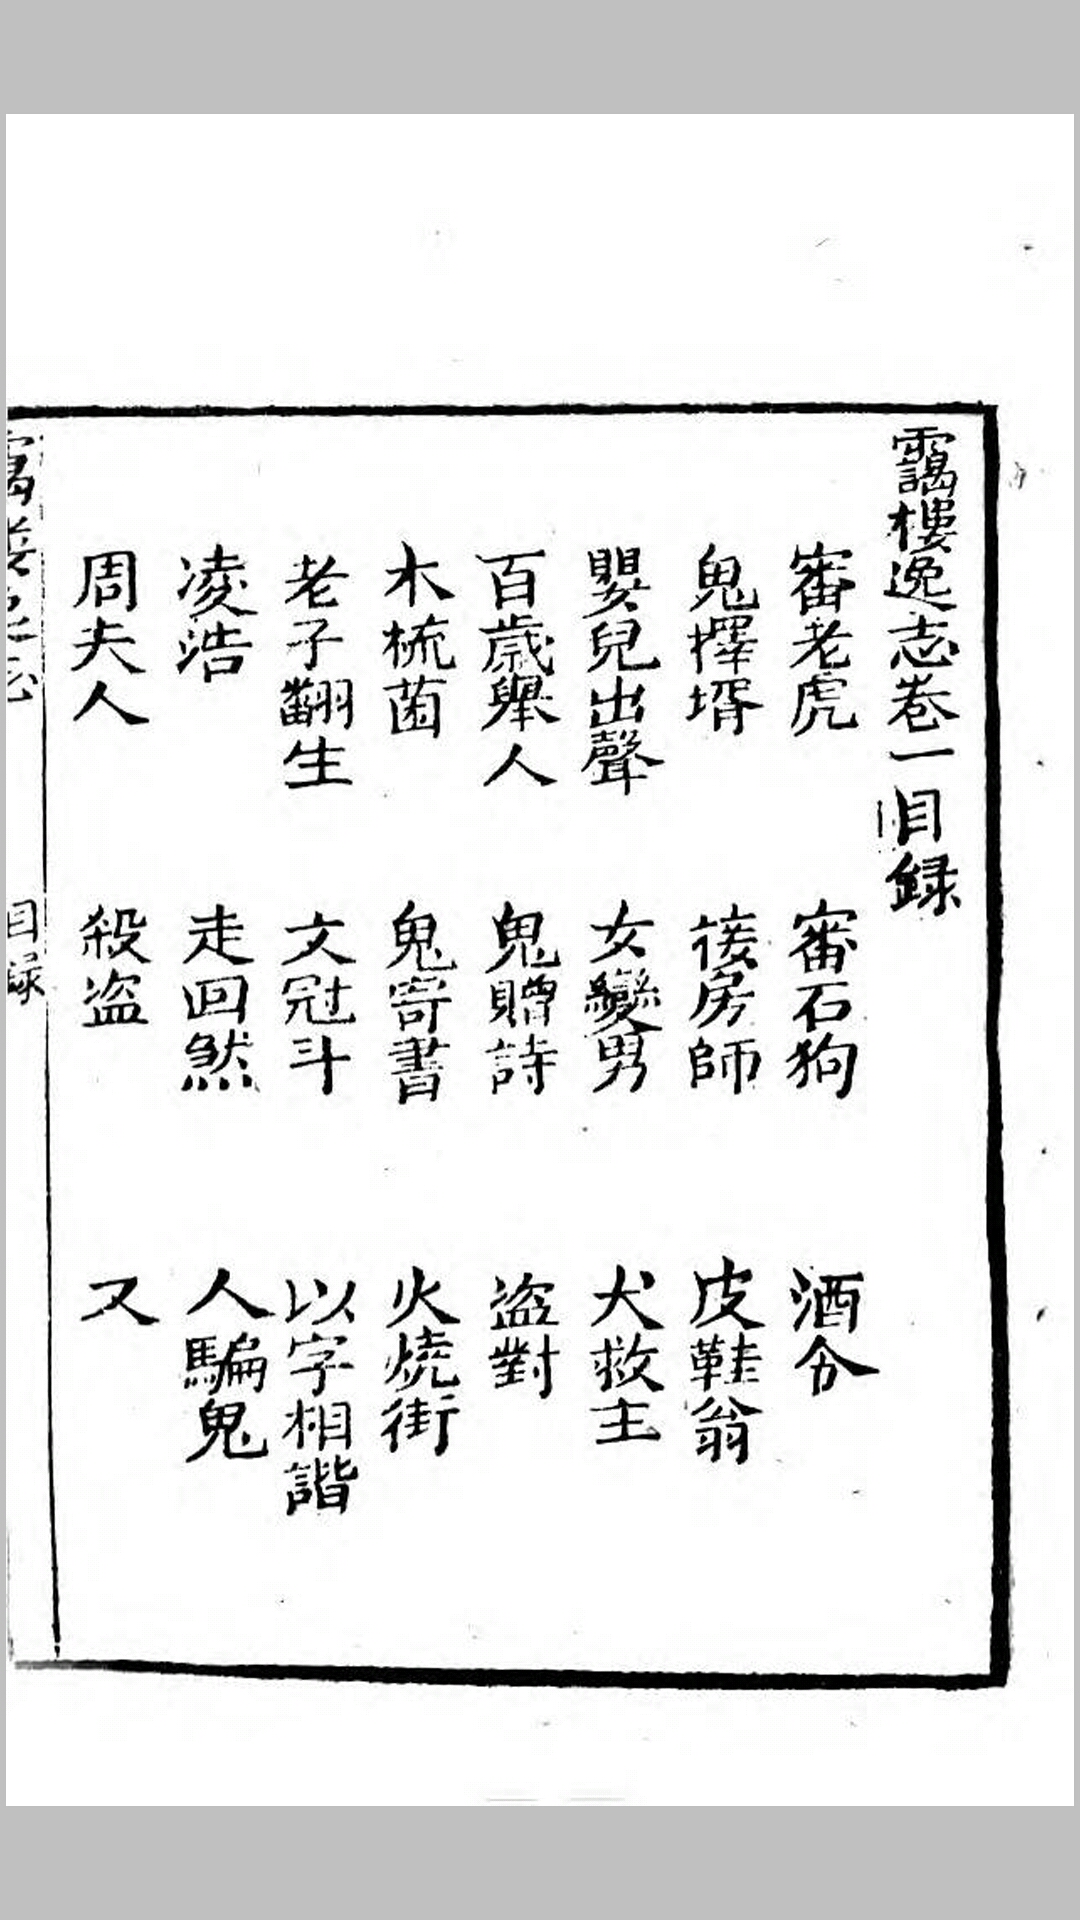 靄樓逸志卷一目録
審老虎　審石狗　酒令
鬼擇壻　後房師　皮鞋翁
嬰兒出聲　女變男　犬救主
百歲舉人　鬼贈詩　盜對
木梳菌　鬼寄書　火燒街
老子翻生　文冠斗　以字相諧
凌浩　走回煞　人騙鬼
周夫人　殺盜　又
目録